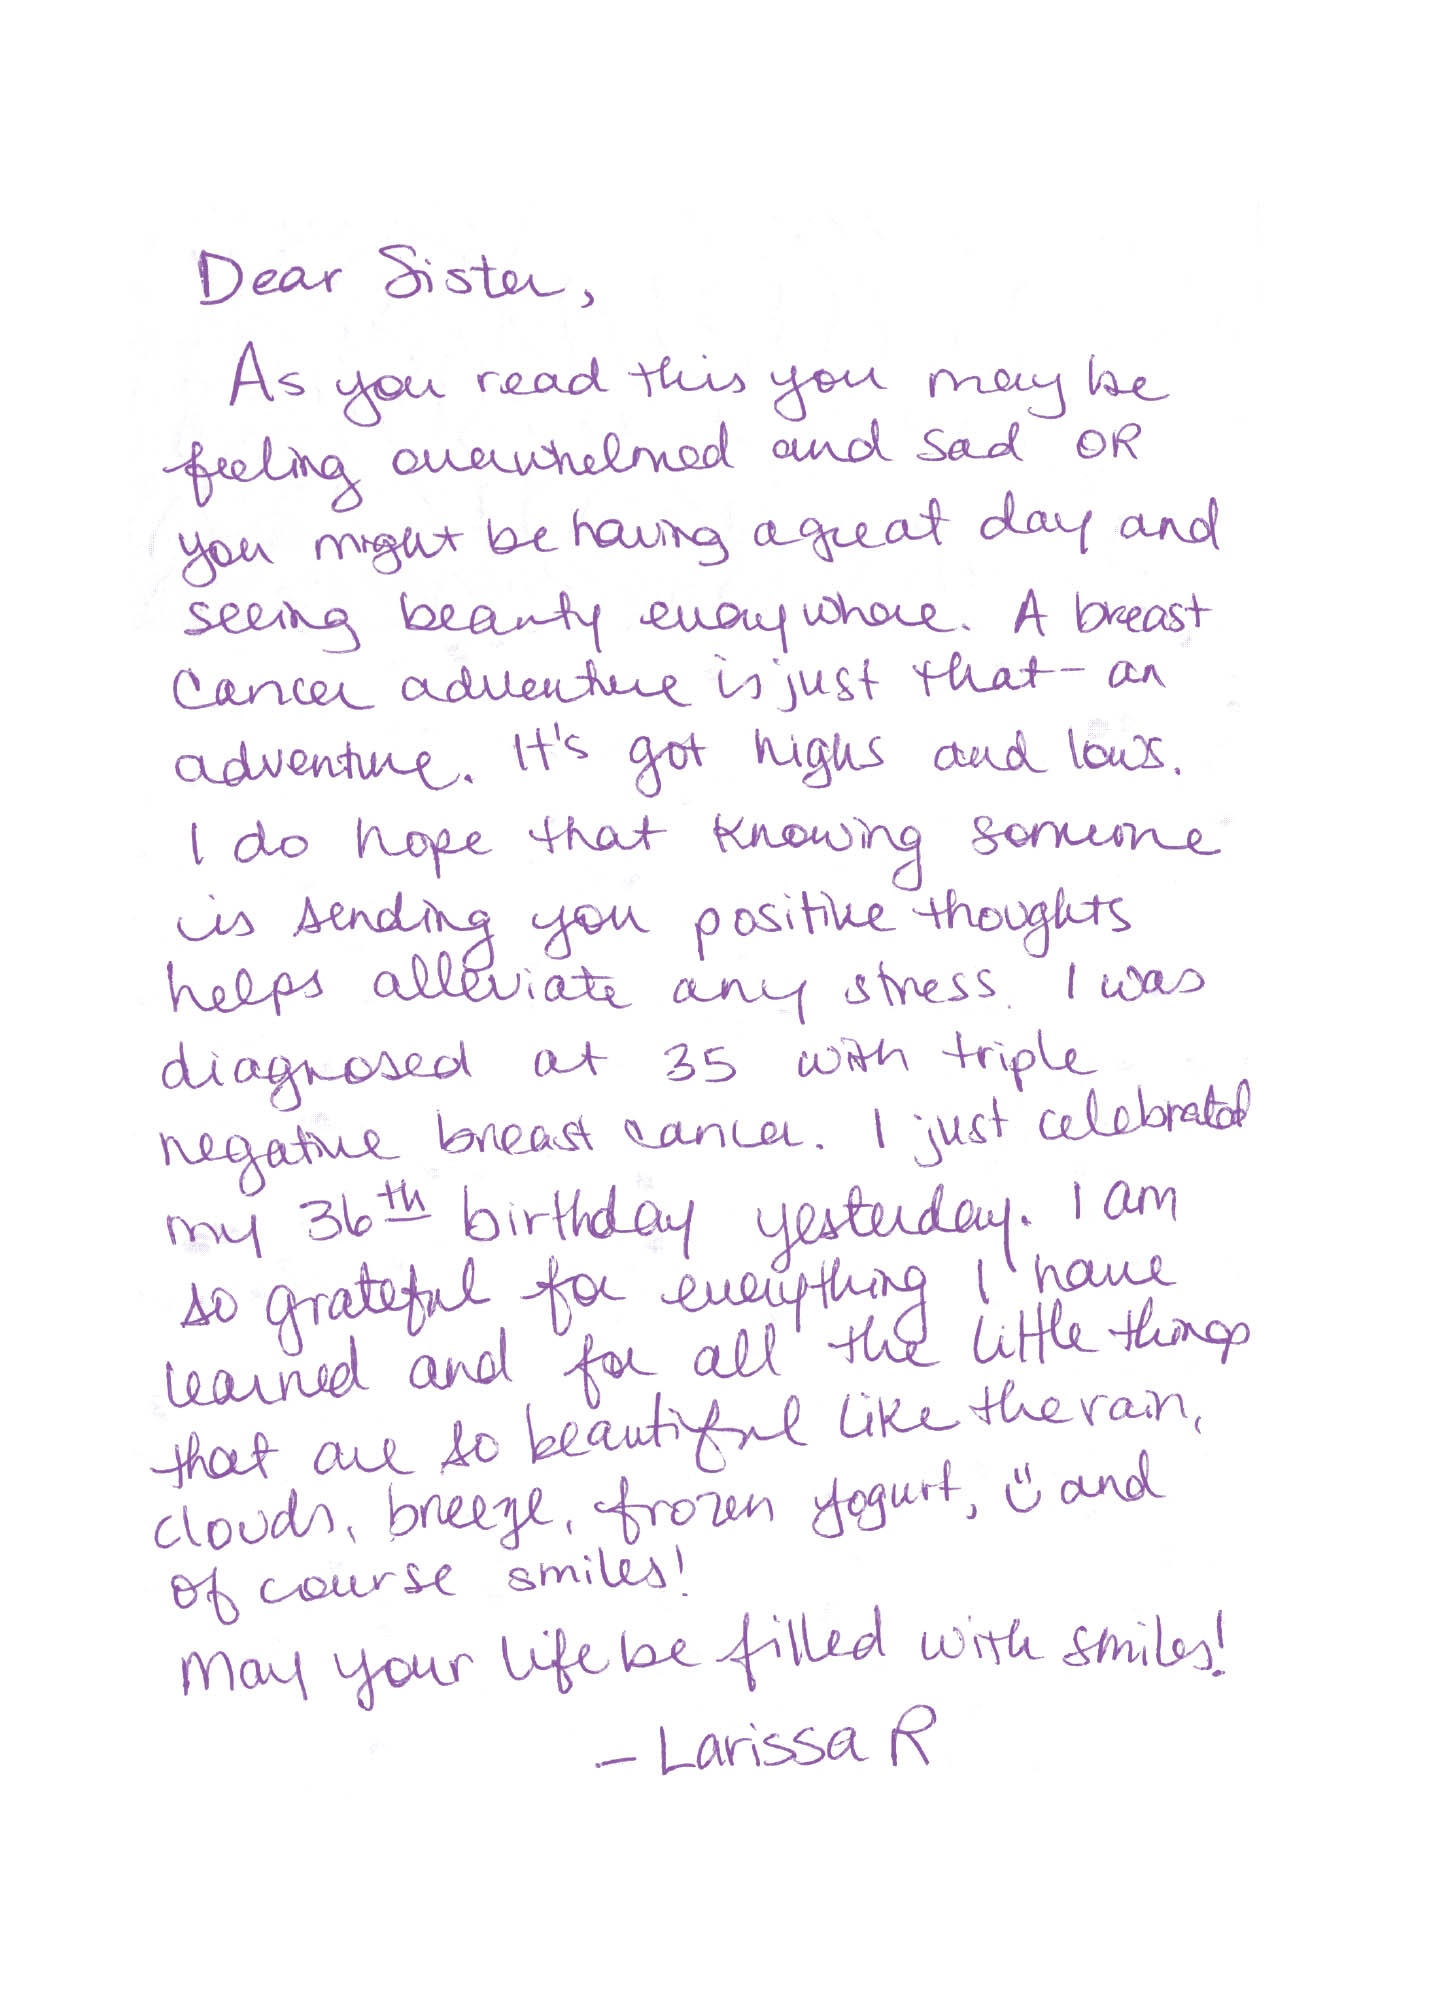 Dear Sister,
As you read this you may be
feeling overwhelmed and sad OR
you might be having a great day and
seeing beauty everywhere. A breast
cancer adventure is just that - an
adventure. It's got highs and lows.
I do hope that knowing someone
is sending you positive thoughts
helps alleviate any stress. I was
diagnosed at 35 with triple
negative breast cancer. I just celebrated
my 36th birthday yesterday. I am
so grateful for everything I have
learned and for all the little things
that are so beautiful like the rain,
clouds, breeze, frozen yogurt, and
of course smiles!
May your life be filled with smiles!
- Larissa R